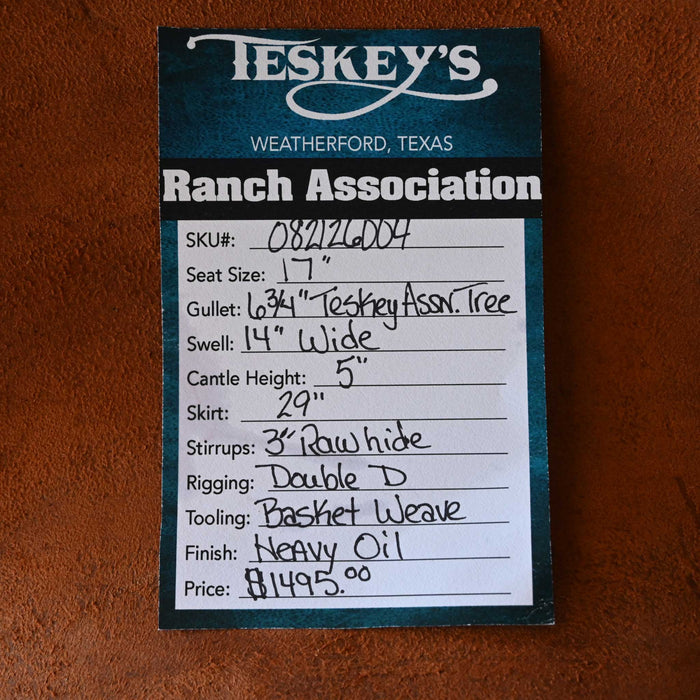 TESKEY'S
WEATHERFORD, TEXAS
Ranch Association
SKU#: 082126D04
Seat Size: 17"
Gullet: 6 3/4" Teskey Assn. Tree
Swell: 14" Wide
Cantle Height: 5"
Skirt: 29"
Stirrups: 3" Rawhide
Rigging: Double D
Tooling: Basket Weave
Finish: Heavy Oil
Price: $1495.00